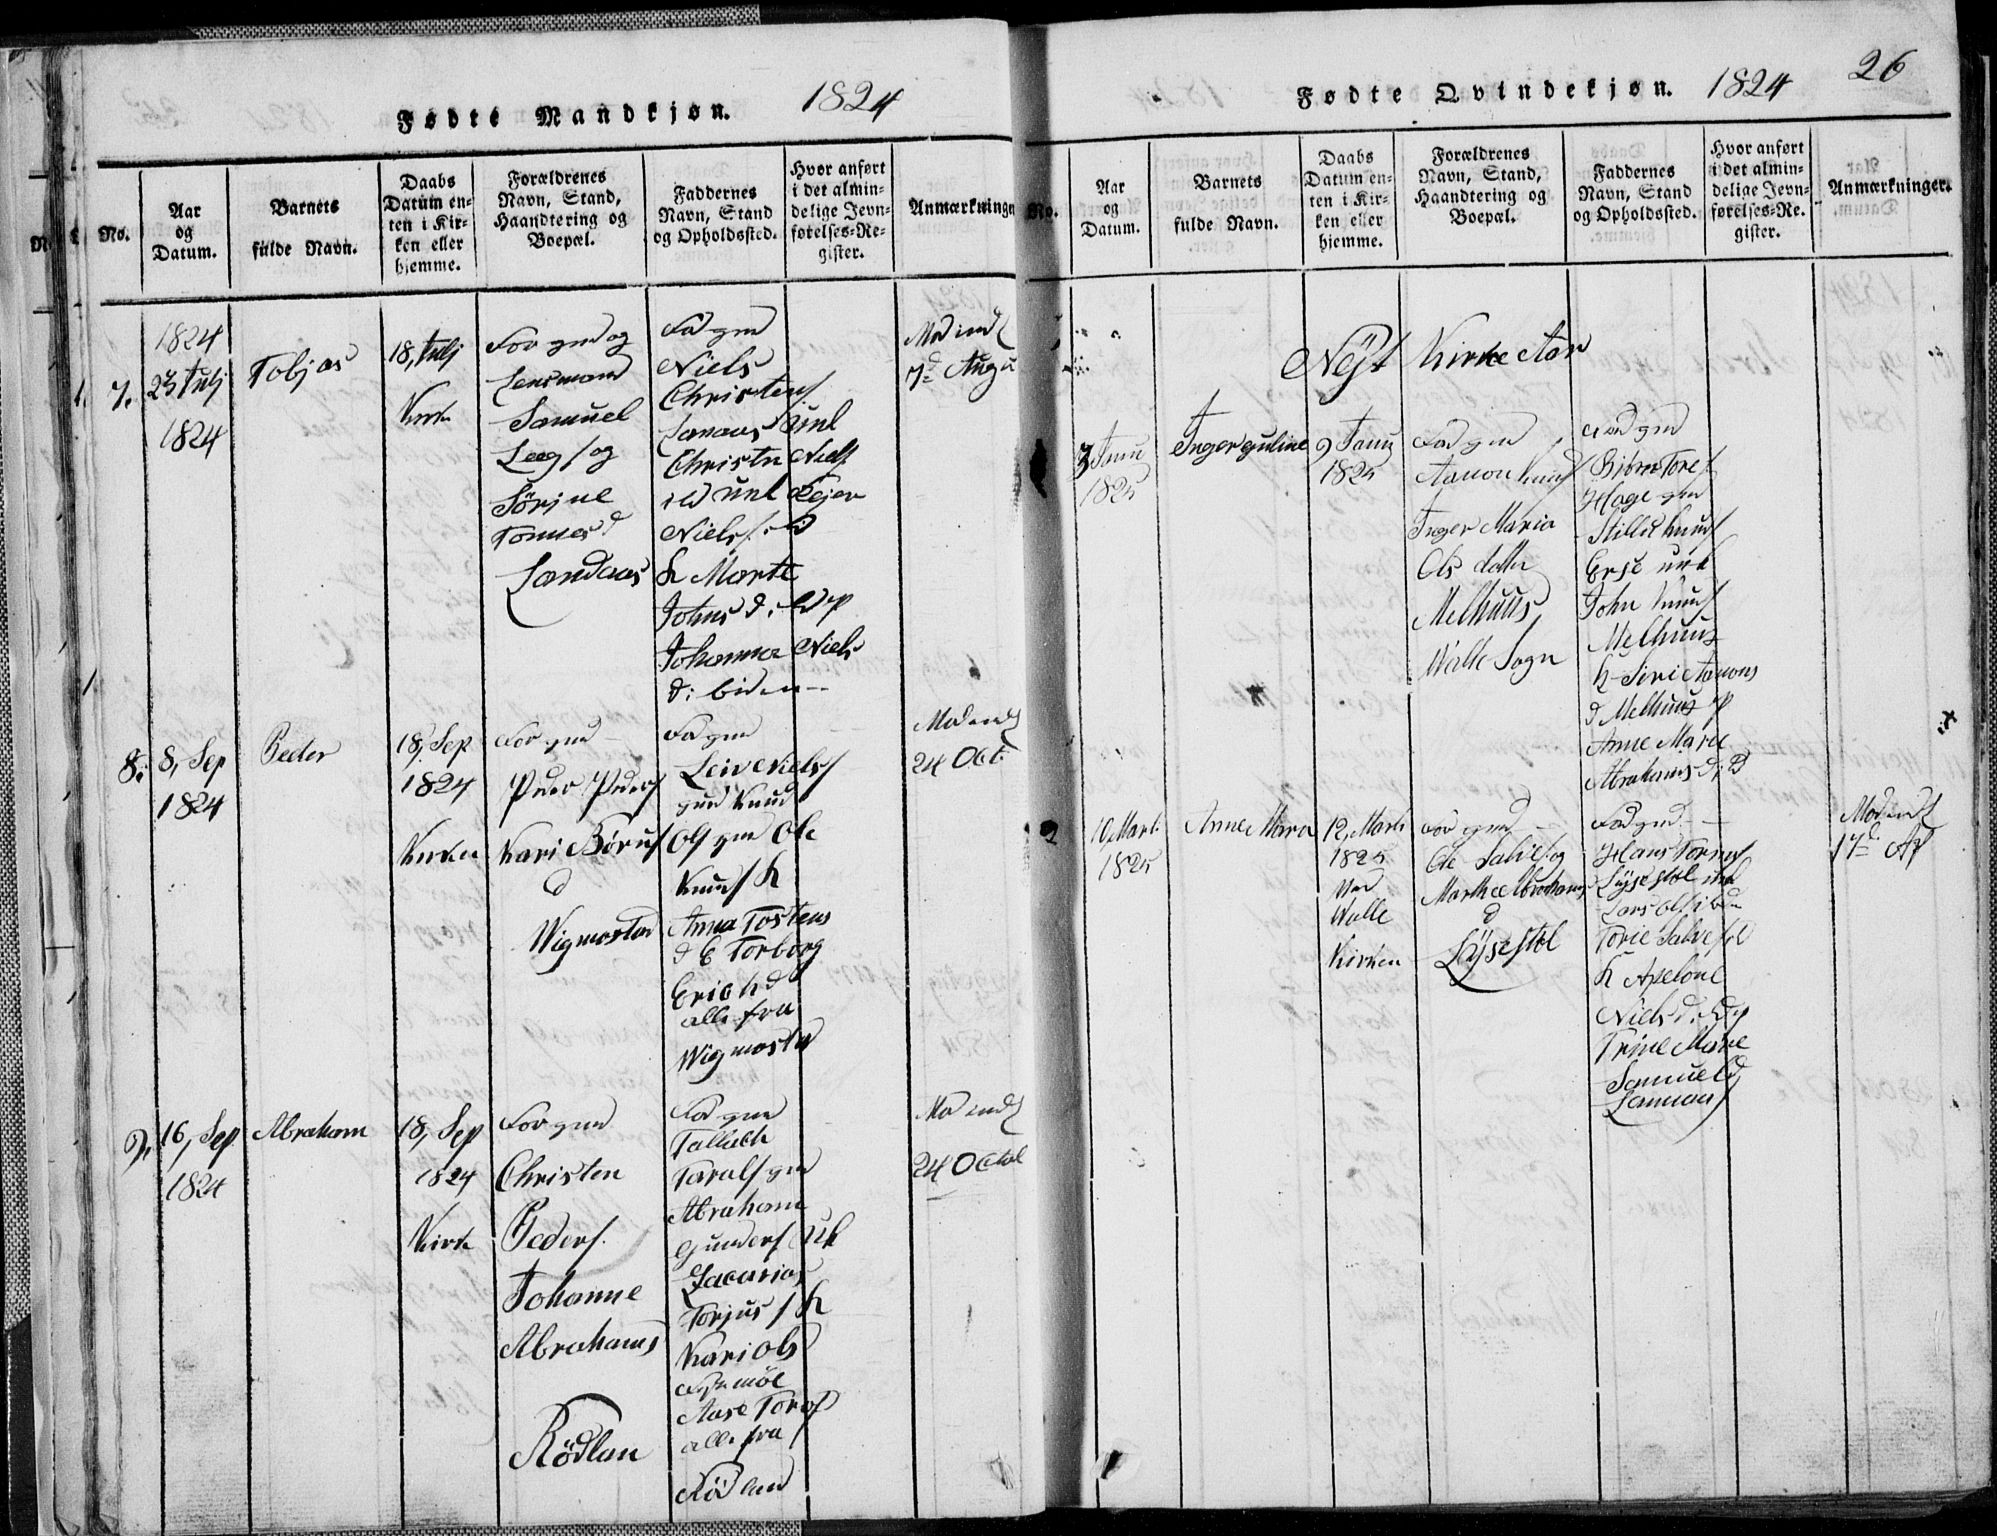 Fødte Mandkjøn. 1824
No.
Aar
og
Datum.
Barnets
fulde Navn.
Daabs
Datum en-
ten i Kir-
ken eller
hjemme.
Forældrenes
Navn, Stand,
Haandtering og
Boepæl.
Faddernes
Navn, Stand
og Opholdssted.
Hvor anført
i det almin-
delige Jevn-
førelses-Re-
gister.
Anmærkninge
7.
1824
23 Julj
1824
Tobjas
18, Julj
Kirke
For gmd og
Lensmand
Samuel
og
Sørine
Tomes d
Landaas
Fad gm
Niels
Christens
unl
Christen Niels
unl
Niels
K Marte
Johns d:
Johanna Niels
d:
Mod ind
7d Augu
8.
8, Sep
1824
Peder
18, Sep
1824
Kirken
For gmd
Peder Peders
Kari Børus
d
Wigmostad
Fad gm
Leiv Niels
gm Knud
Ols gm Ole
Knuds K
Anna Tostens
d E Torborg
Erichd
alle fra
Wigmostad
Mod ind
24 Oct.
9.
16, Sep
1824
Abraham
18, Sep
1824
Kirk
For gmd
Christen
Peders.
Johanne
Abrahams
Rödlan
Fad gm
Tallack
Taralf gm
Abraham
Gunders uk
Zacarias
Torjus K
Kari Ols
Aase
alle fra
Mod ind
24 Octob
Fødte Qvindekjøn. 1824
26
No.
Aar
og
Datum.
Barnets
fulde Navn.
Daabs
Datum en-
ten i Kir-
ken eller
hjemme.
Forældrenes
Navn, Stand,
Haandtering og
Boepæl.
Faddernes
Navn, Stand
og Opholdssted.
Hvor anført
i det almin-
delige Jevn-
førelses-Re-
gister.
Anmærkninger.
Nÿt Kirke Aar
3 Janu
1825
Inger guline
9 Janu
1825
Fad gm
Aanon Knuds
Inger Maria
Ols datter
Melhuus
Walle Sogn
Fad gm
Hage gm
Knuds
unk
John Knuds
Melhuus
K Siri Aanons
d Melhuus p
Anne Marie
Abrahams d:
2
10, Mart.
1825
Anne Maria
12, Marts
1825
Ved
Walle
Kirken
For gmd
Ole Salves og
Marthe Abrahams
d
Lÿsestøl
Fad gmd
Hans Tomes
Lÿsestøl unk
Lars Ols
Torie Salves
K Apelone
Niels d:
Trine Marie
Samuelsd
Mod ind
17d Ap